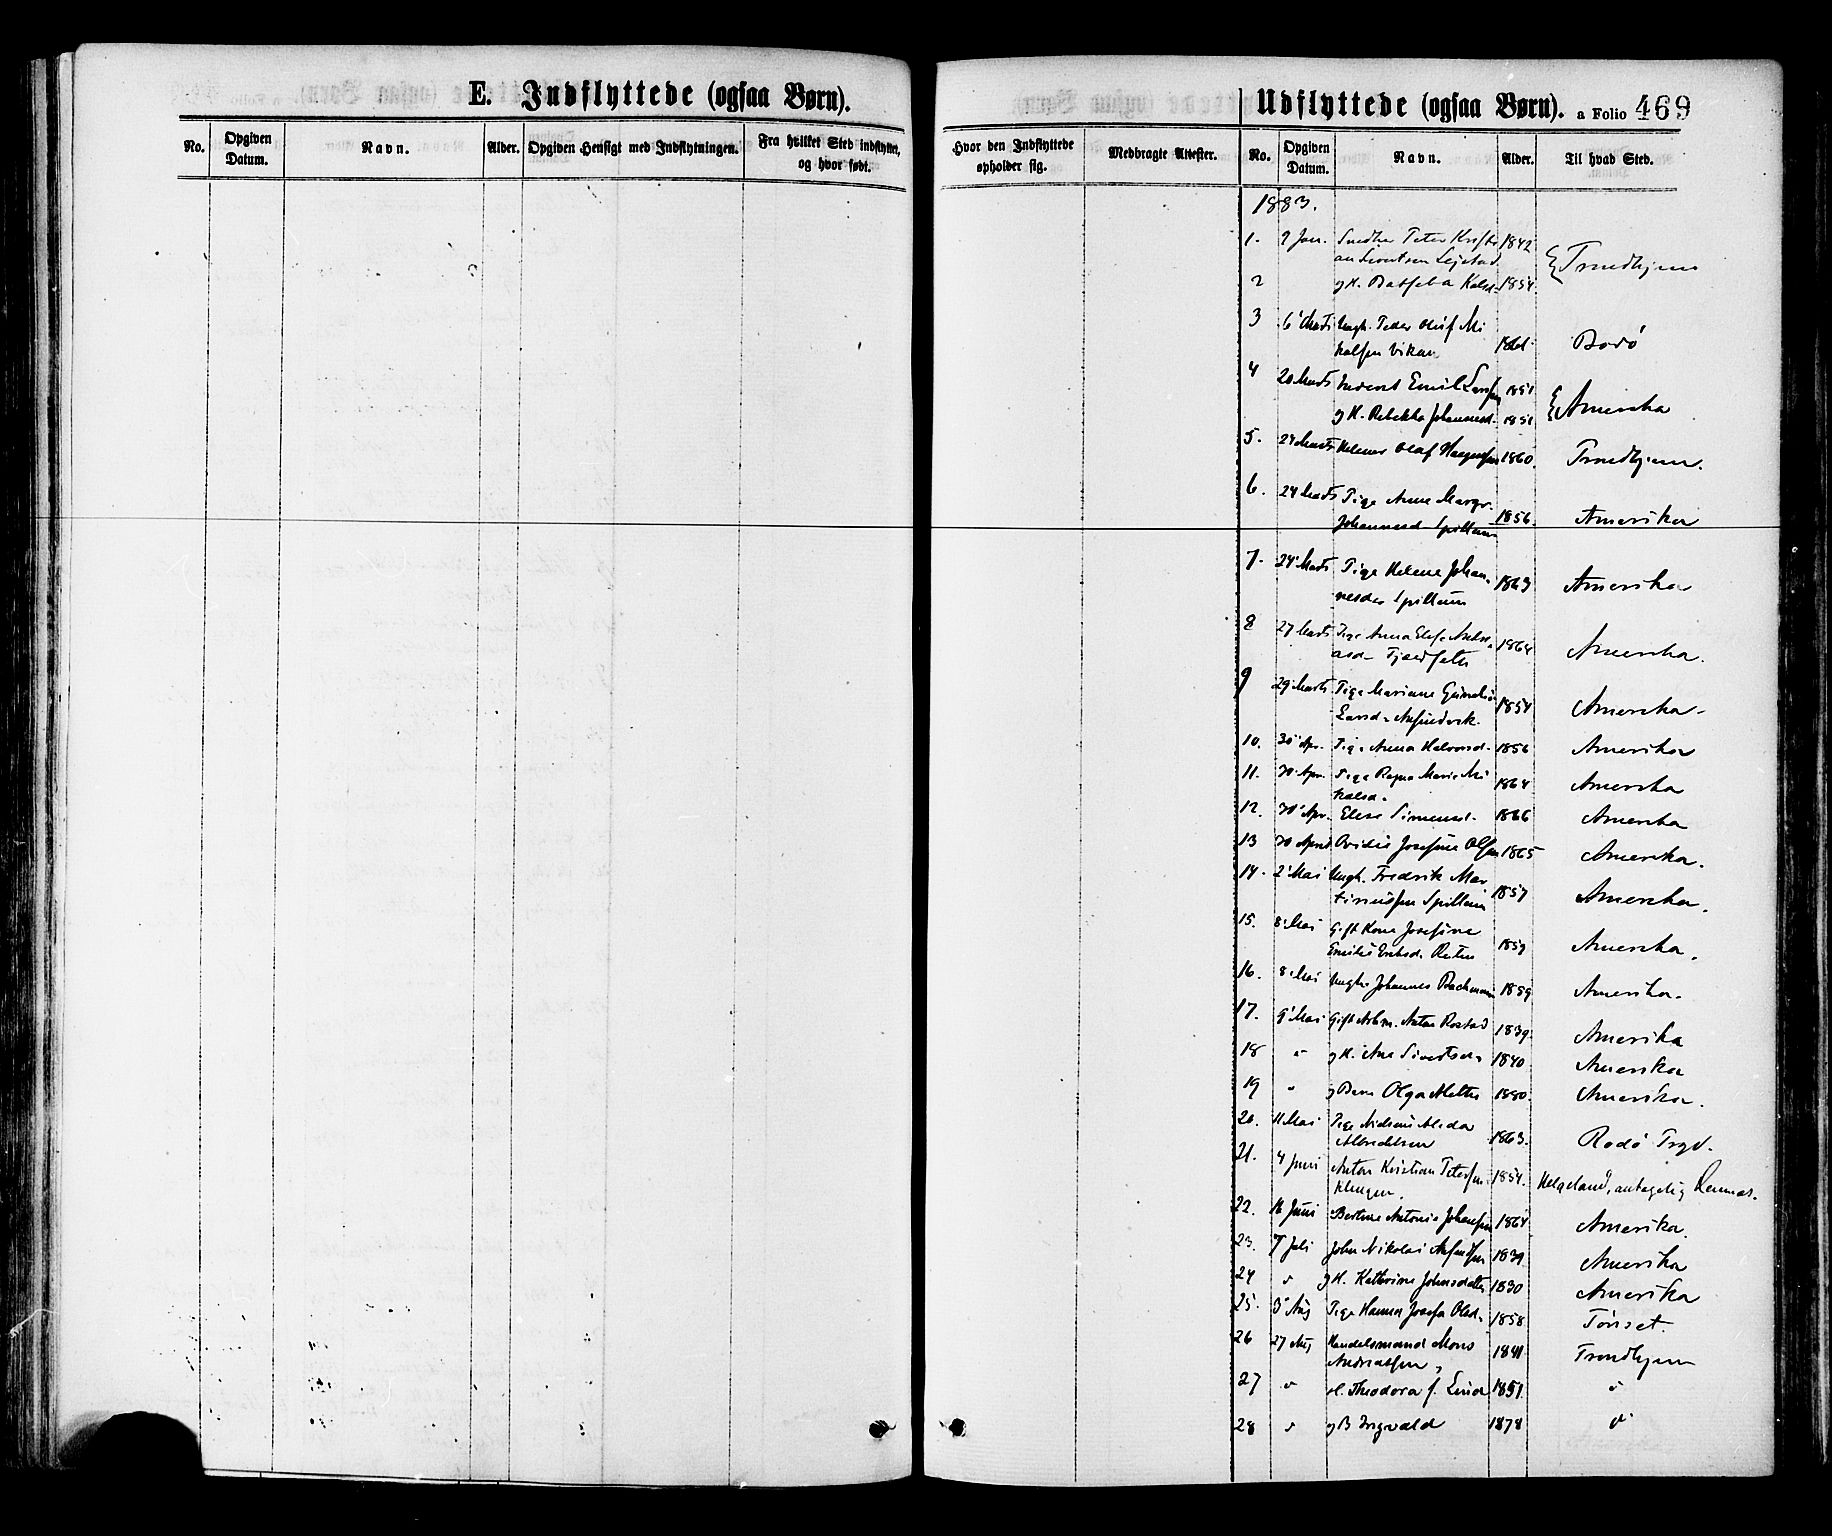 E. Indflyttede (ogsaa Børn).
No. Opgiven Datum. Navn. Alder. Opgiven Hensigt med Indflytningen. Fra hvilket Sted indflyttet, og hvor født.
Udflyttede (ogsaa Børn). a Folio 469
Hvor den Indflyttede opholder sig. Medbragte Attester. No. Opgiven Datum. Navn. Alder. Til hvad Sted.
1883.
1. 9 Jan. Peter 1842 Trondhjem
2 g K. Batseba 1854
3 6' Marts Ungk. Peder Oluf Mi
kalsen Vikan Bodø
4 20 Marts Emil 1851 Amerika
g K. Rebekka Johannesd. 1851
5. 24 Marts Olaf 1860. Trondhjem.
6. 24 Marts Pige Anne Margr.
Johannesd. Spillum 1856 Amerika
7. 24' Marts Pige Helene Johan
nesdr Spillum 1863 Amerika
8 27 Marts Pige Anna 1864 Amerika.
9 29 Marts Pige Mariane
Larsd. 1854 Amerika
10. 30' Apr. Pige Anna Halvorsd. 1856 Amerika
11. 30 Apr. Pige Ragna Marie Mi
kalsd. 1864 Amerika
12. 30' Apr. Elise Simensd. 1866 Amerika
13 30 April Ovidie Josefine Olsen 1865 Amerika.
14. 2' Mai Ungk. Fredrik Mar
tinusen Spillum 1857 Amerika.
15. 8' Mai Gift Kone Josefine
Emilie 1859 Amerika.
16. 8' Mai Ungk. Johannes Bachmann 1859 Amerika.
17. 9' Mai Gift Arbm. Anton Rostad 1839. Amerika
18 " g K. Ane Sivertsen 1840. Amerika
19 " g Barn Olga Mette 1880. Amerika.
20. 11 Mai Pige Alida
1863. Rødø Prgd.
21. 4 Juni Anton Kristian Petersen
Klingen. 1854. Helgeland, antagelig
22. 16 Juni Bertine Antonie Johansen 1864 Amerika.
23. 7 Juli John Nikolai 1839 Amerika
24 " g K. Kathrine Johnsdatter 1830 Amerika
25. 3' Aug Pige Hanna Josefa Olsd. 1858 Tønset.
26 27 Aug Handelsmand Mons
Andreassen, 1841 Trondhjem
27 " K. Theodora f. Lund 1851. "
28 " g B Ingvald 1878 "